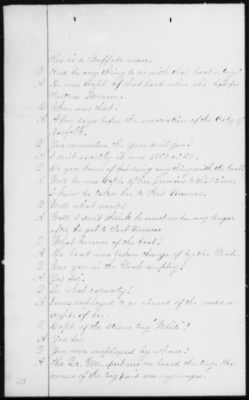 He is a Buffalo man.
Q Had he any thing to do with that boat or tug?
A He was Capt. of that boat when she left for
Fortress Monroe.
Q When was that?
A A few days before the evacuation of the City of
Norfolk.
Q You remember the year don't you?
A I don't exactly it was 1862 or
Q Do you know of his doing any thing with the boat?
A Well he was Capt. of her previous to this time.
I know he taken her to Fort Monroe.
Q Well what next?
A Well I don't think he went on her any longer
after he got to Fort Monroe
Q What became of the boat?
A The boat was taken charge of by the Govt.
Q Was you in the Govt. employ?
A Yes Sir.
Q In what capacity?
A I was employed to go aboard of the
Capt. of her.
Q Capt. of the steam tug "White"?
A Yes Sir.
Q You were employed by whom?
A The Qr. Mr. put me on board the tug. The
owner of the tug paid me my wages.